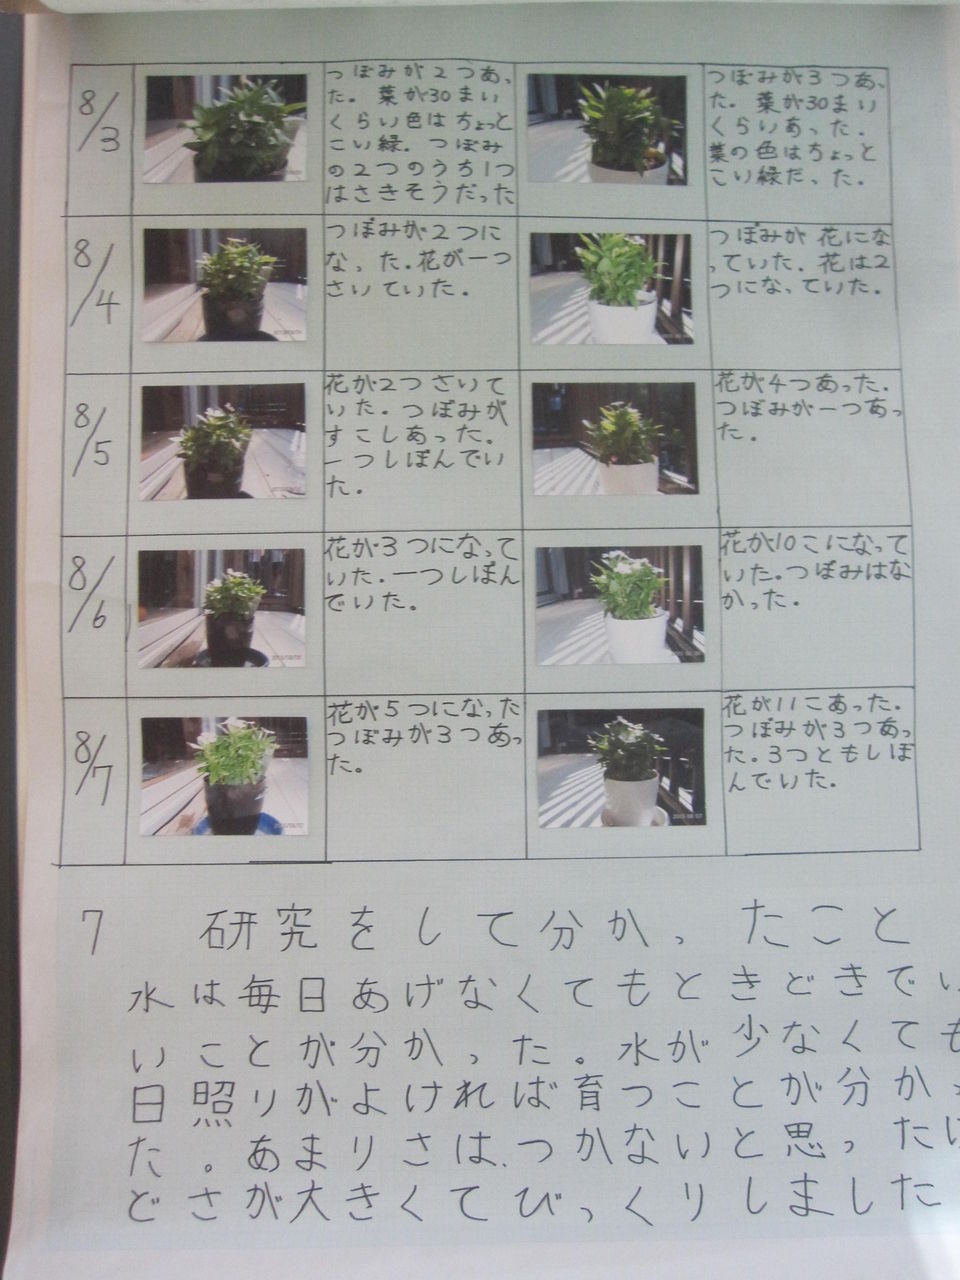 8/3
つぼみが2つあっ
た。葉が30まい
くらい色はちょっと
こい緑。つぼみ
の2つのうち1つ
はさきそうだった
つぼみが3つあっ
た。葉が30まい
くらいあった。
葉の色はちょっと
こい緑だった。
8/4
つぼみが2つに
なった.花が一つ
さいていた。
つぼみが花にな
っていた.花は2
つになっていた。
8/5
花が2つさいて
いた。つぼみが
すこしあった。
一つしぼんでい
た。
花が4つあった.
つぼみが一つあっ
た。
8/6
花が3つになって
いた.一つしぼん
でいた。
花が10こになって
いた.つぼみはな
かった.
8/7
花が5つになった
つぼみが3つあっ
た。
花が11こあった.
つぼみが3つあっ
た。3つともしぼ
んでいた.
7 研究をして分かったこと
水は毎日あげなくてもときどきでい
いことが分かった。水が少なくても
日照りがよければ育つことが分かっ
た。あまりさは、つかないと思ったけ
どさが大きくてびっくりしました